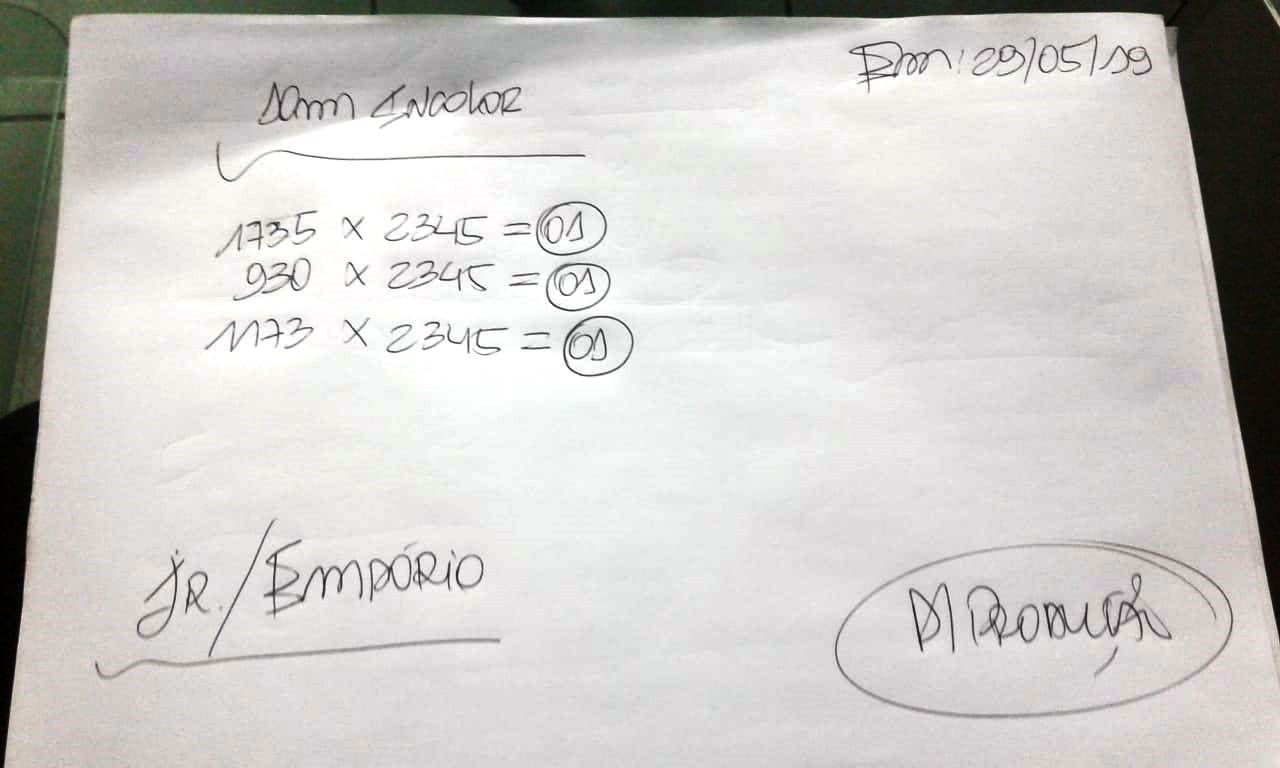 Em: 29/05/19
10mm INCOLOR
1735 x 2345 = 01
930 x 2345 = 01
1173 x 2345 = 01
JR. / EMPÓRIO
P/ PRODUÇÃO